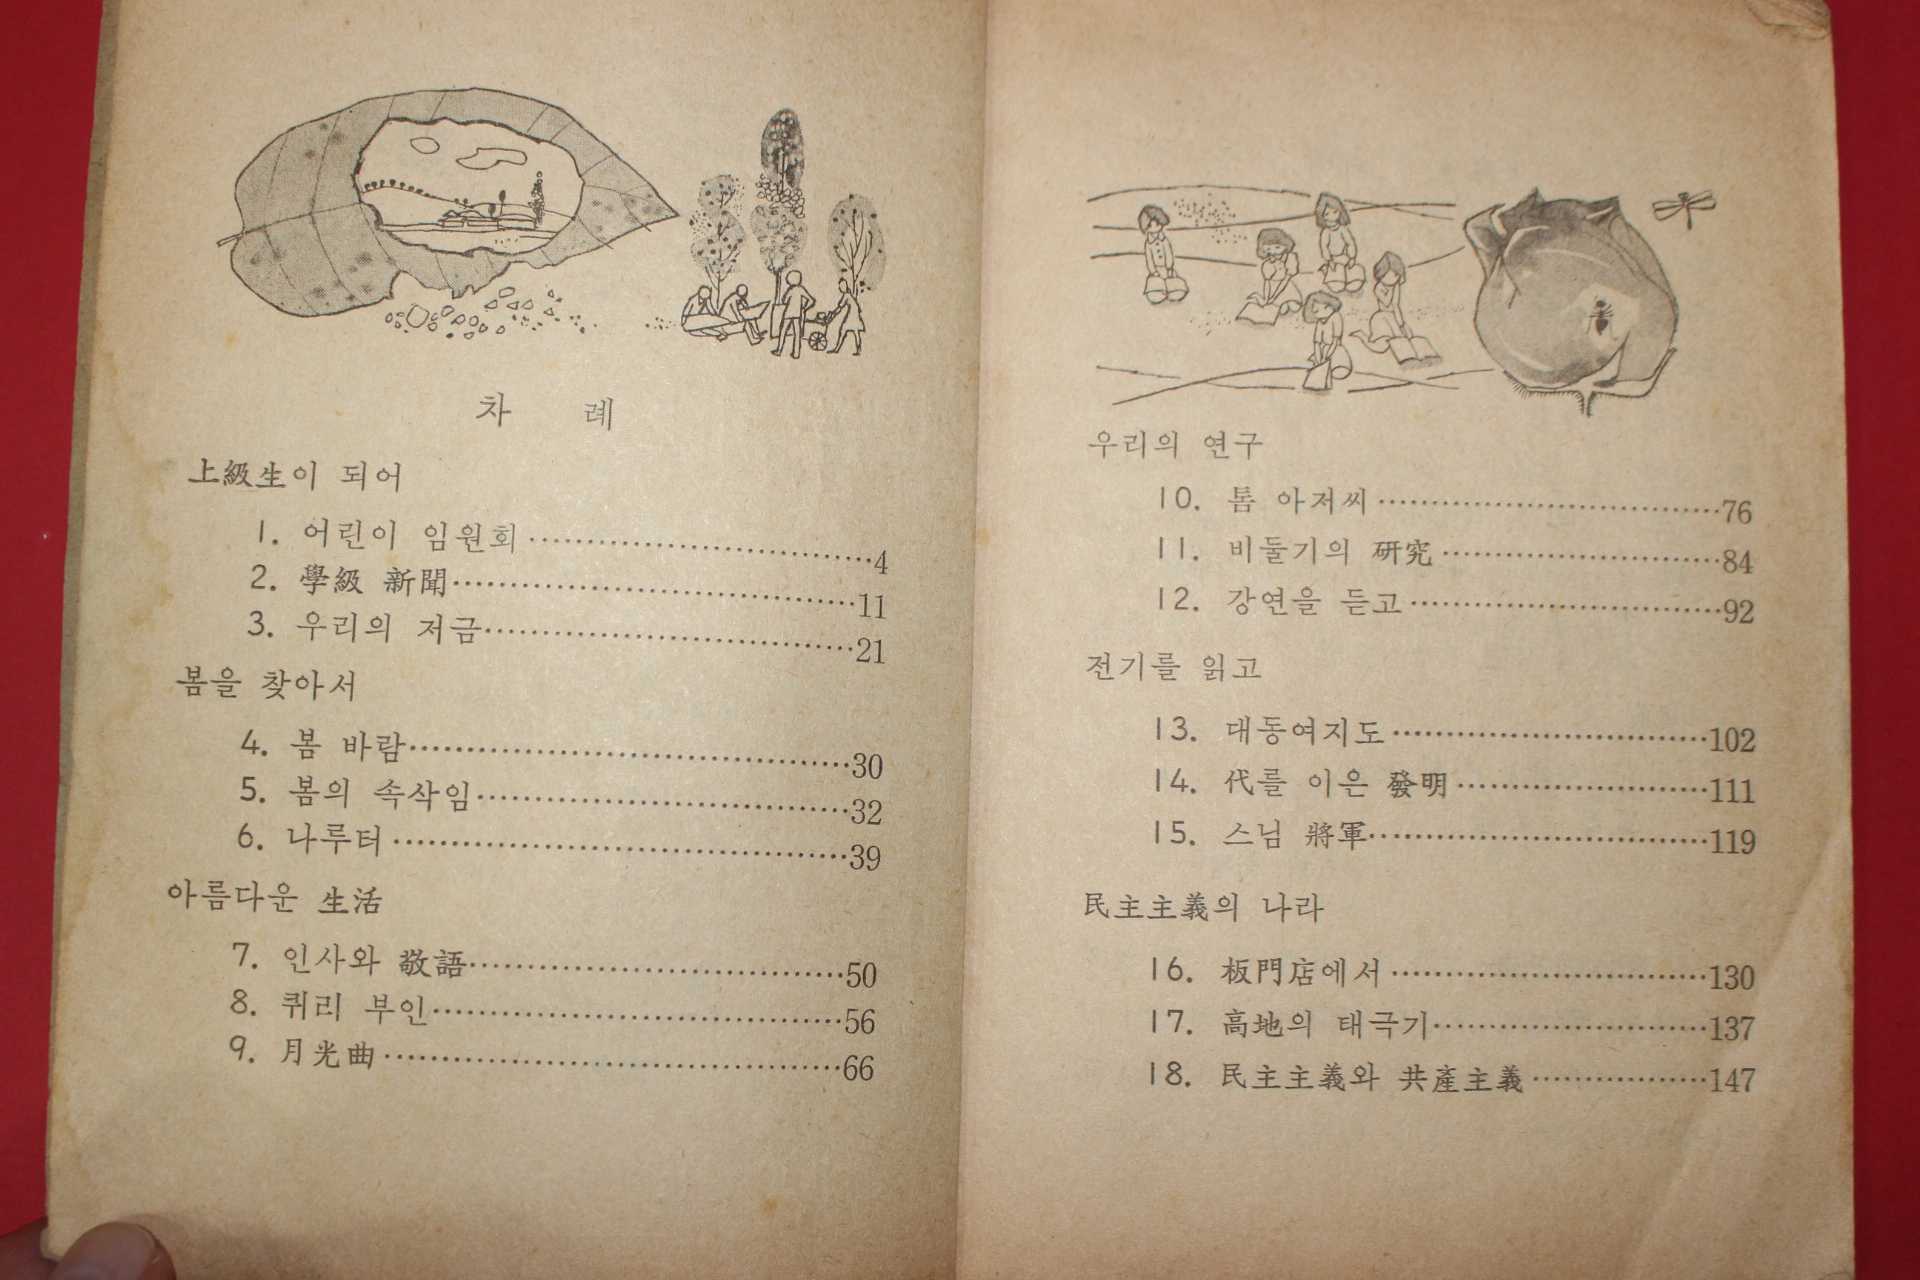 차 례
上級生이 되어
1. 어린이 임원회 4
2. 學級 新聞 11
3. 우리의 저금 21
봄을 찾아서
4. 봄 바람 30
5. 봄의 속삭임 32
6. 나루터 39
아름다운 生活
7. 인사와 敬語 50
8. 퀴리 부인 56
9. 月光曲 66
우리의 연구
10. 톰 아저씨 76
11. 비둘기의 硏究 84
12. 강연을 듣고 92
전기를 읽고
13. 대동여지도 102
14. 代를 이은 發明 111
15. 스님 將軍 119
民主主義의 나라
16. 板門店에서 130
17. 高地의 태극기 137
18. 民主主義와 共產主義 147